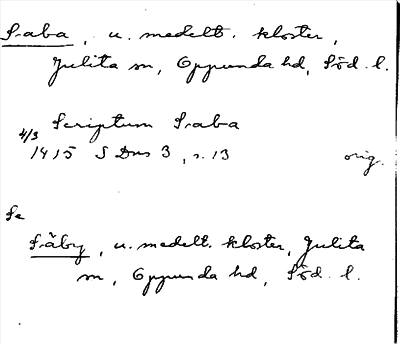 Saba, u. medelt. kloster,
Julita sn, Oppunda hd, Söd. l.
Scriptum Saba
4/3
1415 SDns 3, s. 13 orig.
Se
Såby, u. medelt. kloster, Julita
sn, Oppunda hd, Söd. l.